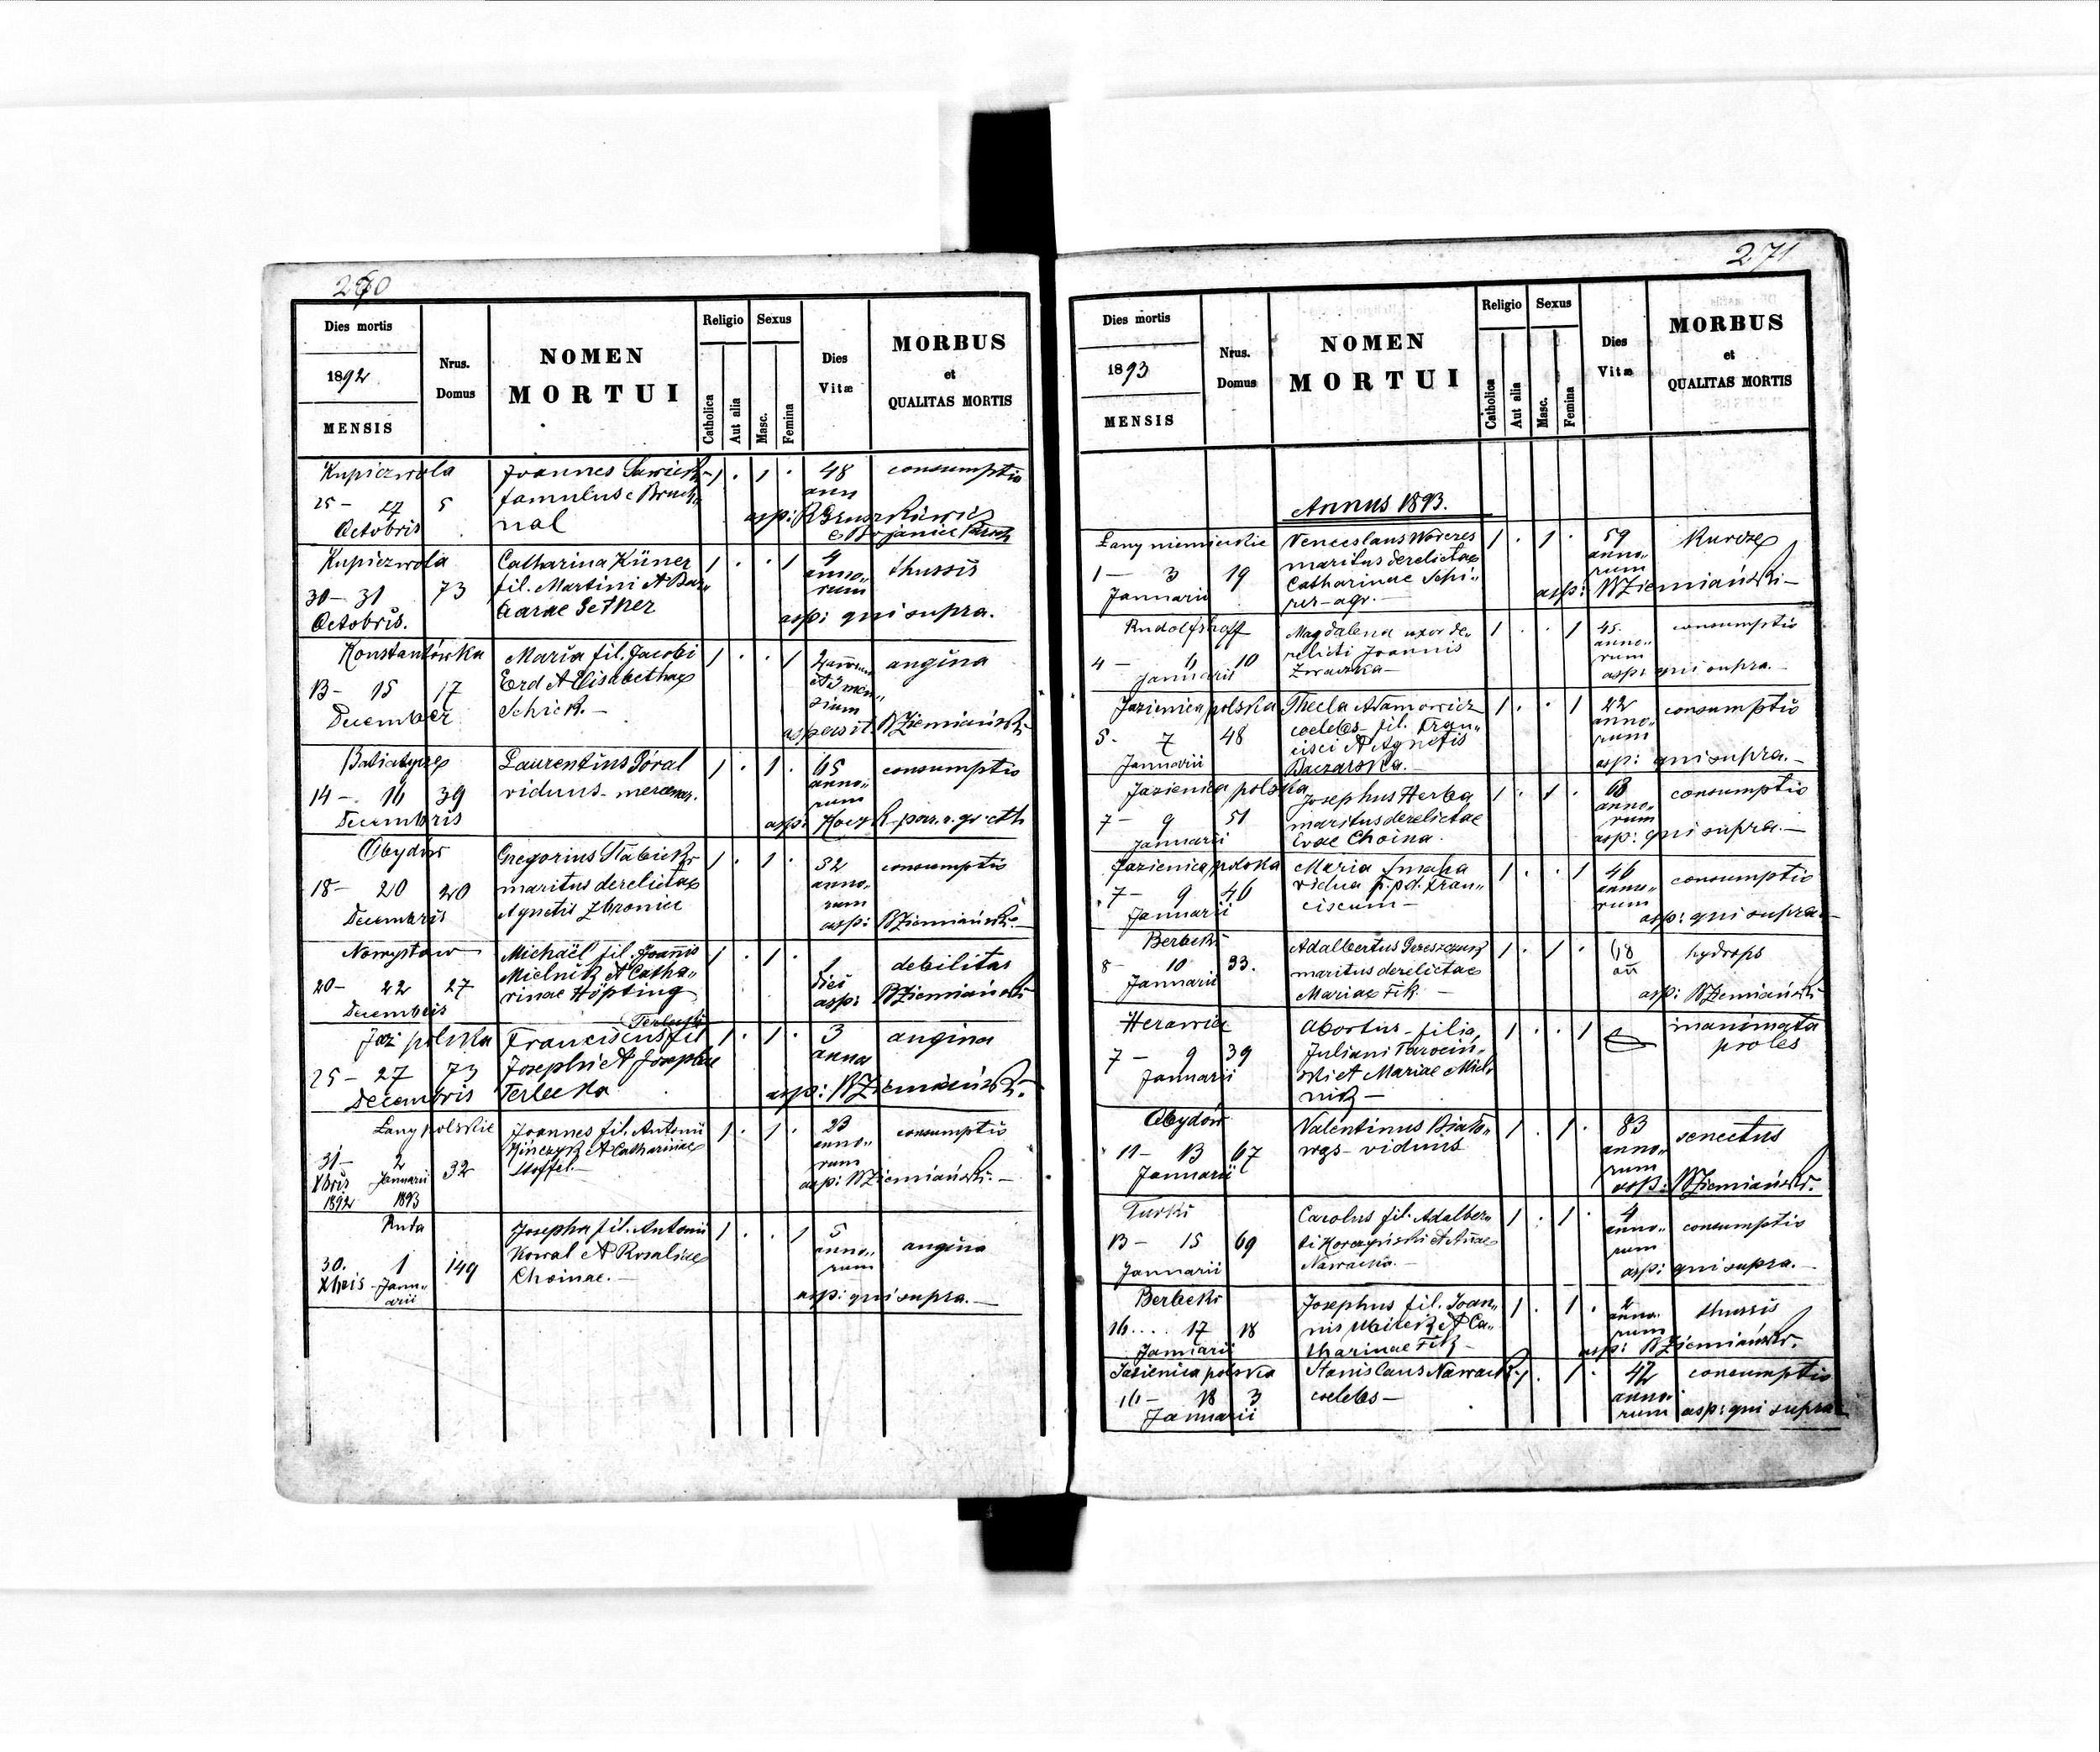 270
Dies mortis
1892
MENSIS
Nrus.
Domus
NOMEN
MORTUI
Religio
Catholica
Aut alia
Sexus
Masc.
Femina
Dies
Vitæ
MORBUS
et
QUALITAS MORTIS
Kupiczwola
25 - 27
Octobris
5
Joannes Sawicki
famulus e Bruck„
nal
1 . 1 .
48
ann
consumptio
asp:
Kupiczwola
30 - 31
Octobris.
73
Catharina Küner
fil. Martini et Bar„
barae Getner
1 . . 1
4
anno„
rum
thussis
asp: qui supra.
Konstantówka
13 - 15
December
17
Maria fil. Jacobi
Erd et Elisabethae
Schick. -
1 . . 1
2 annorum
et 3 men„
sium
angina
aspersit. WZiemiański
Batiatycze
14 - 16
Decembris
39
Laurentius Góral
viduus - mercenar.
1 . 1 .
65
anno„
rum
consumptio
asp:
Obydów
18 - 20
Decembris
20
Gregorius Stabicki
maritus derelictae
Agnetis Zbroniec
1 . 1 .
52
anno„
rum
consumptio
asp: WZiemiański. -
Nowystaw
20 - 22
Decembris
27
Michaël fil. Joannis
Mielnik et Catha„
rinae Höpting
1 . 1 .
1
dies
debilitas
asp: WZiemiański
Jaz polska
25 - 27
Decembris
73
Terlecki
Franciscus fil
Josephi et Josephae
Terlecka
1 . 1 .
3
anna
angina
asp: WZiemiański.
Łany polskie
31 - 2
Xbris Januarii
1892 1893
32
Joannes fil. Antonii
Hińczyk et Catharinae
Stoffel. -
1 . 1 .
23
anno„
rum
consumptio
asp: WZiemiański. -
Ruda
30. 1
Xbris - Janu„
arii
149
Josepha fil. Antonii
Kowal et Rosaliae
Choinae. -
1 . . 1
5
anno„
rum
angina
asp: qui supra. -
271
Dies mortis
1893
MENSIS
Nrus.
Domus
NOMEN
MORTUI
Religio
Catholica
Aut alia
Sexus
Masc.
Femina
Dies
Vitæ
MORBUS
et
QUALITAS MORTIS
Annus 1893.
Łany niemieckie
1 - 3
Januarii
19
Venceslaus Worczes
maritus derelictae
Catharinae Schi„
rer - agr. -
1 . 1 .
59
anno„
rum
Kurcze
asp: WZiemiański -
Rudolfshoff
4 - 6
Januarii
10
Magdalena uxor de„
relicti Joannis
Zwaryka -
1 . . 1
45.
anno„
rum
consumptio
asp: qui supra. -
Jazienica polska
5. 7
Januarii
48
Thecla Adamowicz
coelebs - fil. Fran„
cisci et Agnetis
Baczarska. -
1 . . 1
22
anno„
rum
consumptio
asp: qui supra. -
Jazienica polska
7 - 9
Januarii
51
Josephus Herba
maritus derelictae
Evae Choina.
1 . 1 .
68
anno„
rum
consumptio
asp: qui supra. -
Jazienica polska
7 - 9
Januarii
46
Maria Smaha
vidua p. pd. Fran„
ciscum -
1 . . 1
46
anno„
rum
consumptio
asp: qui supra -
Berbeki
8 - 10
Januarii
33.
Adalbertus Gereszczuk
maritus derelictae
Mariae Fik. -
1 . 1 .
68
añ
hydrops
asp: WZiemiański
Herawiec
7 - 9
Januarii
39
Abortus - filia
Juliani Tarociń„
ski et Mariae Miel„
nik -
1 . . 1
inanimata
proles
Obydów
11 - 13
Januarii
67
Valentinus Biało„
wąs - viduus
1 . 1 .
83
anno„
rum
senectus
asp: WZiemiański.
Turki
13 - 15
Januarii
69
Carolus fil. Adalber„
ti Korczyński et Añae
Nawacka. -
1 . 1 .
4
anno„
rum
consumptio
asp: qui supra. -
Berbeki
16 .... 17
Januarii
18
Josephus fil. Joan„
nis Mbitek et Ca„
tharinae Fik -
1 . 1 .
2
anno„
rum
thussis
asp: WZiemiański.
Jazienica polska
16 - 18
Januarii
3
Stanislaus Nawacki
coelebs -
1 . 1 .
42
anno„
rum
consumptio
asp: qui supra